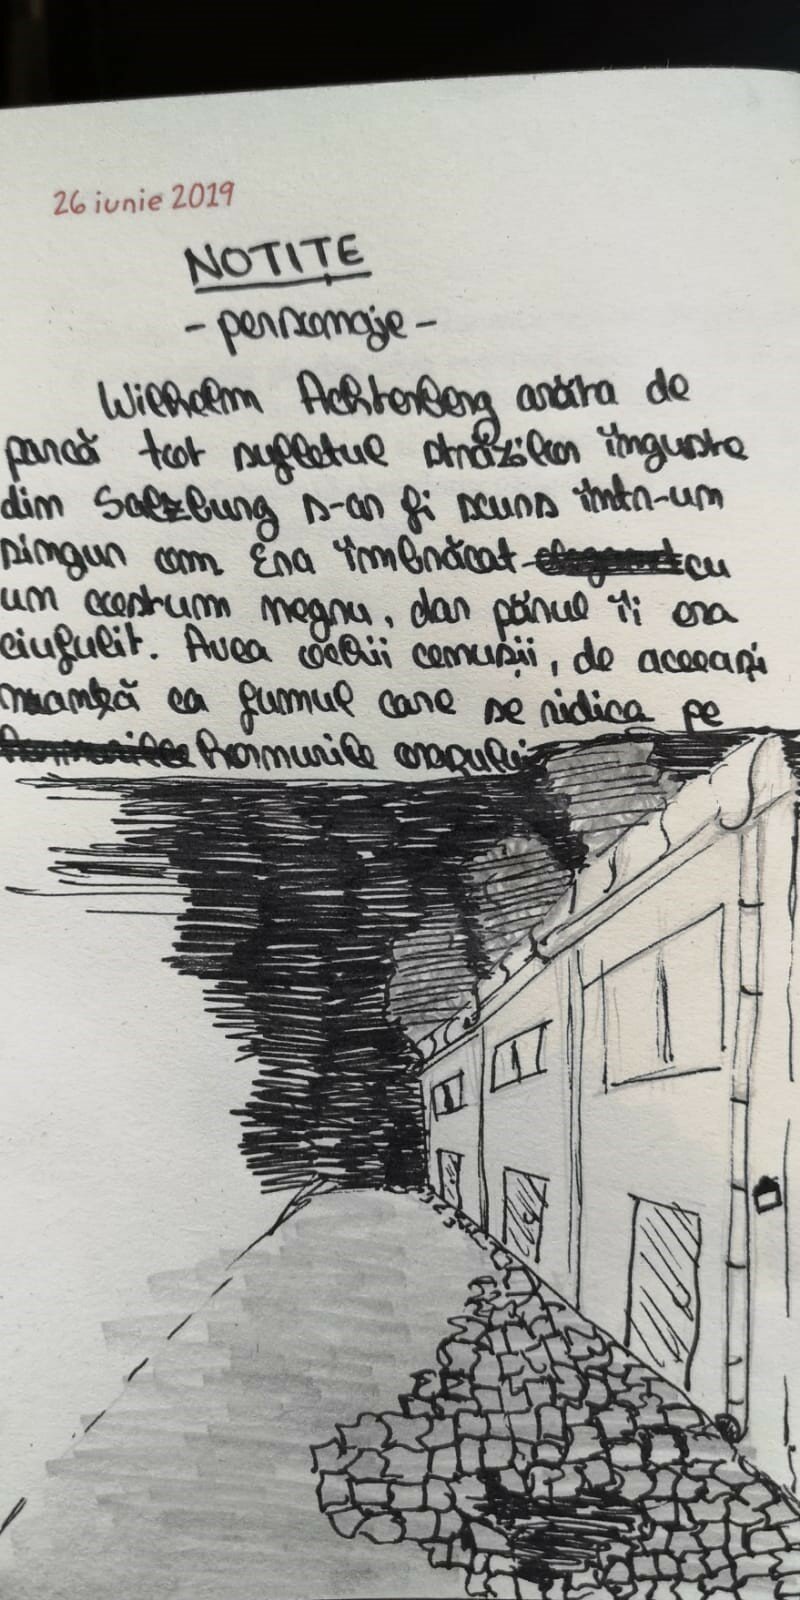 26 iunie 2019
NOTIȚE
- personaje -
Wilhelm Achterberg arăta de
parcă tot sufletul străzilor înguste
din Salzburg s-ar fi scurs într-un
singur om. Era îmbrăcat cu
un costum negru, dar părul îi era
ciufulit. Avea ochii cenușii, de aceeași
nuanță ca fumul care se ridica pe
hornurile orașului